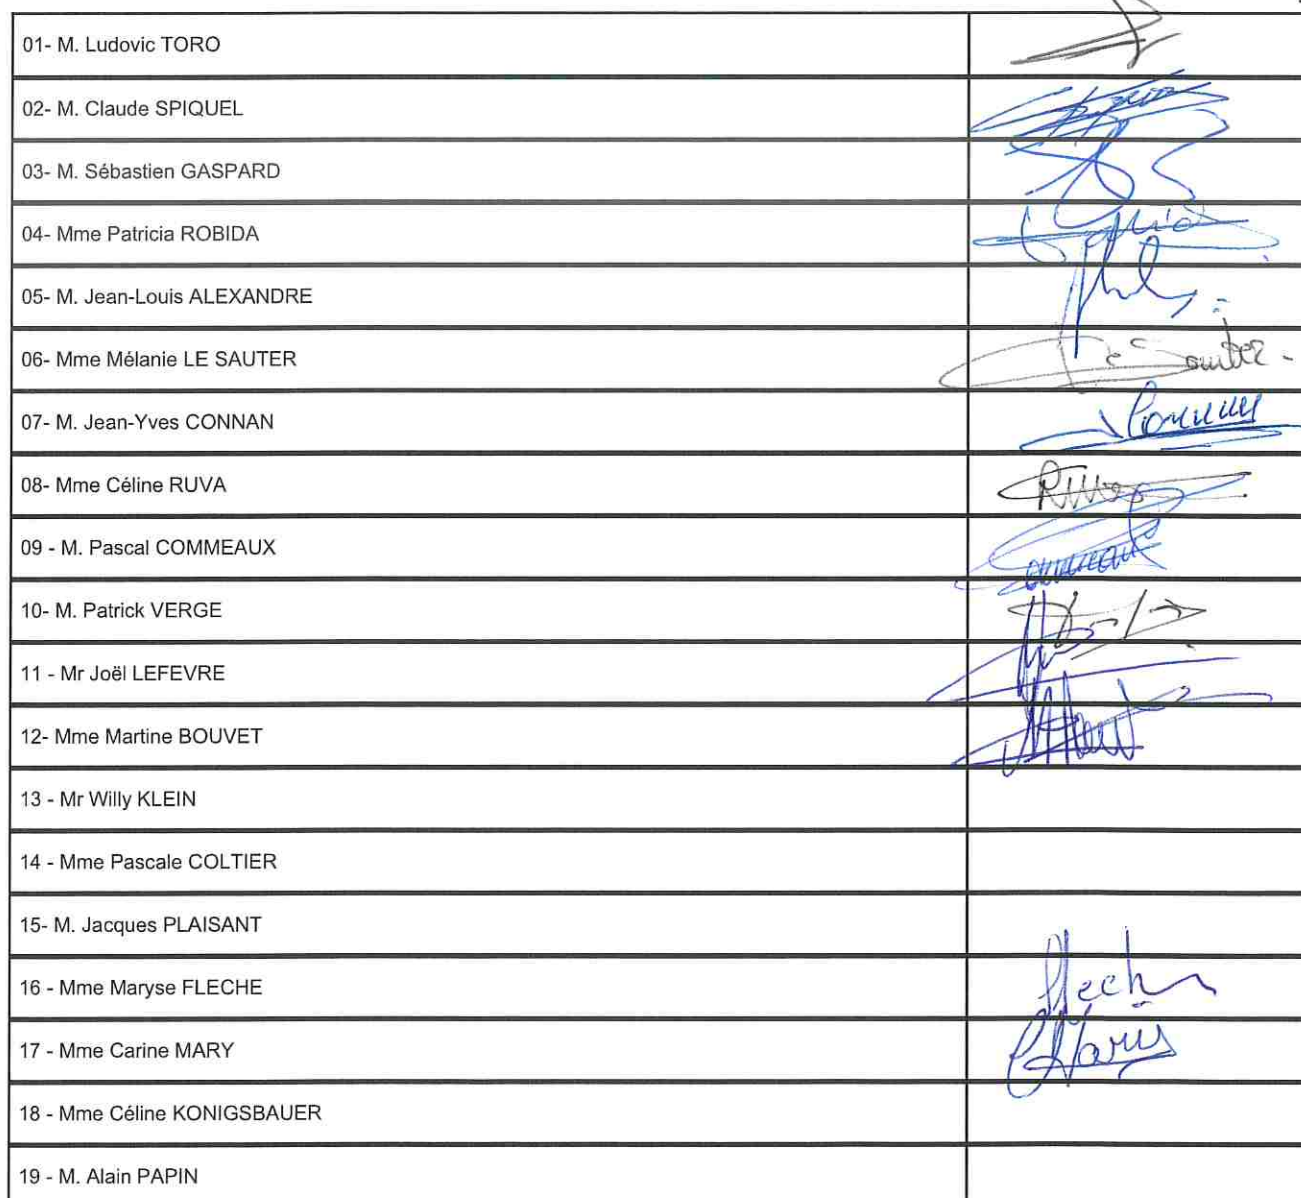 01- M. Ludovic TORO
02- M. Claude SPIQUEL
03- M. Sébastien GASPARD
04- Mme Patricia ROBIDA
05- M. Jean-Louis ALEXANDRE
06- Mme Mélanie LE SAUTER
07- M. Jean-Yves CONNAN
08- Mme Céline RUVA
09 - M. Pascal COMMEAUX
10- M. Patrick VERGE
11 - Mr Joël LEFEVRE
12- Mme Martine BOUVET
13 - Mr Willy KLEIN
14 - Mme Pascale COLTIER
15- M. Jacques PLAISANT
16 - Mme Maryse FLECHE
17 - Mme Carine MARY
18 - Mme Céline KONIGSBAUER
19 - M. Alain PAPIN